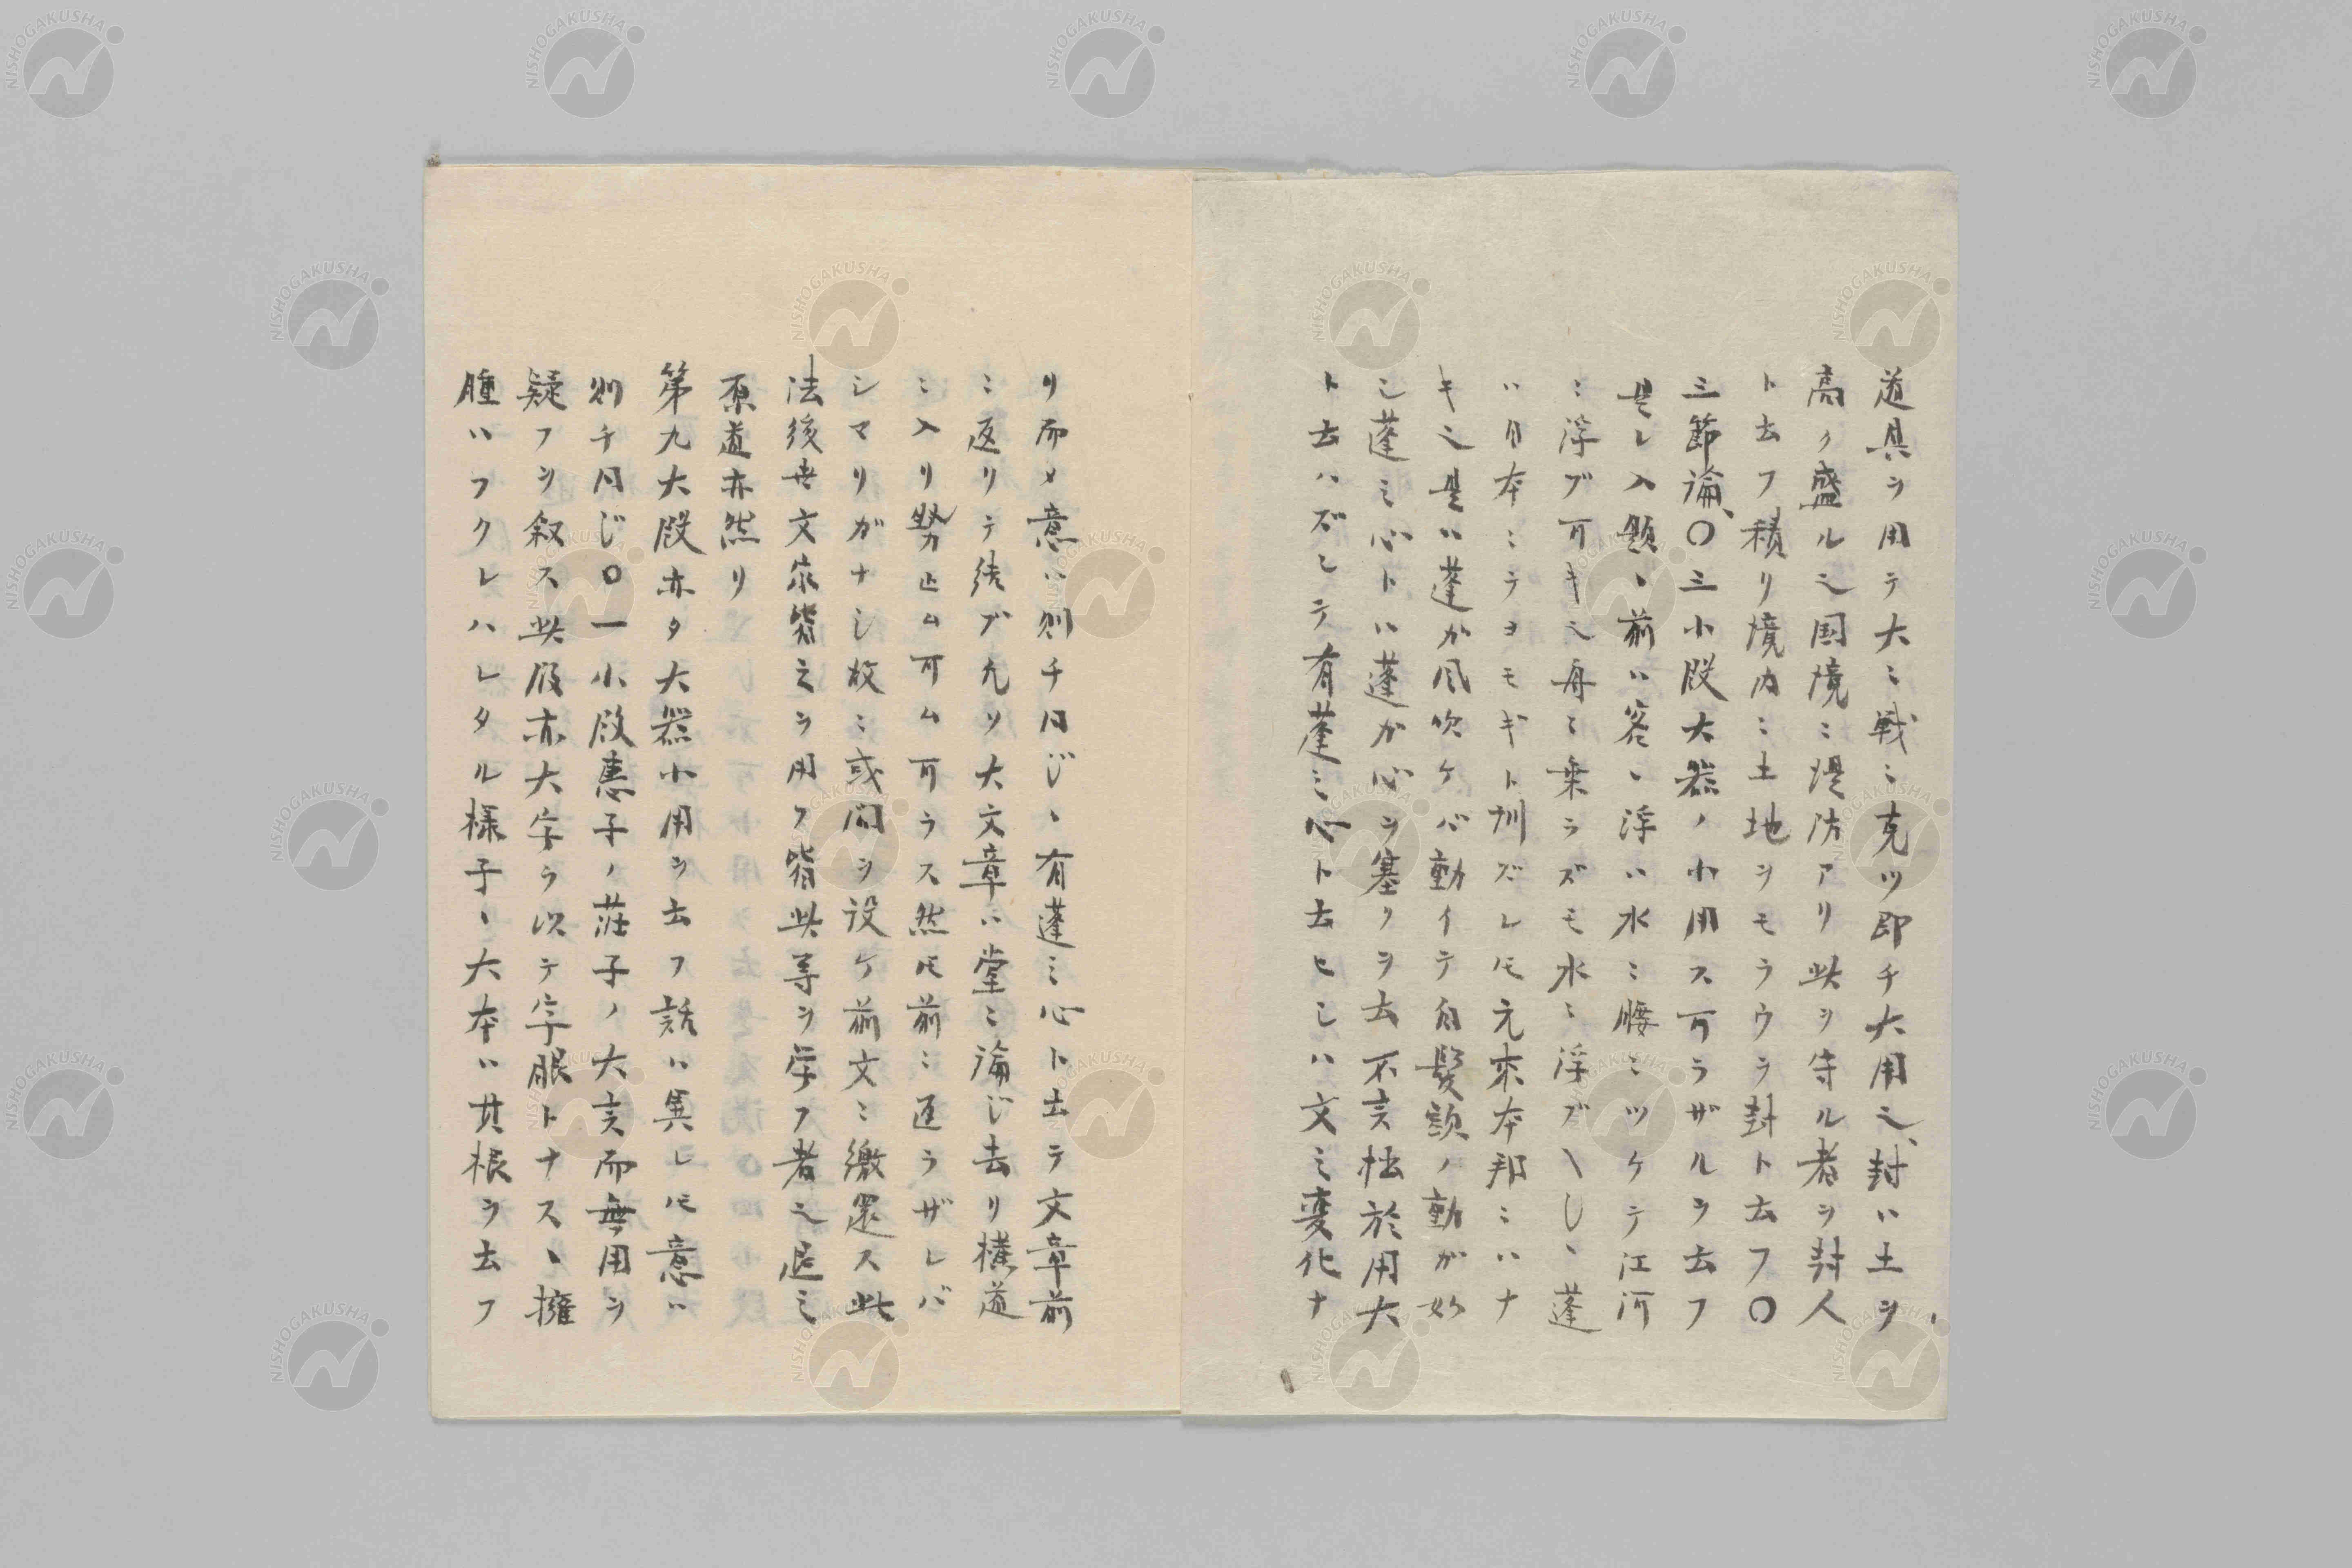 道具ヲ用テ大ニ戦ニ克ツ即チ大用之、封ハ土ヲ
高ク盛ル之国境ニ堤防アリ此ヲ守ル者ヲ封人
ト云フ積リ境内ニ土地ヲモラウヲ封ト云フ〇
三節論、〇三小段大器ノ小用ス可ラザルヲ云フ
是レ入題、前ハ客、浮ハ水ニ腰ニツケテ江河
ニ浮ブ可キ之舟ニ乗ラズモ水ニ浮ブベシ、蓬
ハ日本ニテヨモギト訓ズレ𪜈元来本邦ニハナ
キ之是ハ蓬が風吹ケバ動イテ自髮顔ノ動が如
シ蓬ミ心トハ蓬ガ心ヲ塞クヲ云不言拙於用大
ト云ハズシテ有蓬ミ心ト云ヒシハ文ミ変化ナ
リ而メ意ハ則チ同ジ、有蓬ミ心ト云テ文章前
ニ返リテ結ブ凡ソ大文章ハ堂ミ論ジ去リ横道
ニ入リ努止ム可ム可ラス然𪜈前ニ返ラザレバ
シマリガナシ故ニ或問ヲ設ケ前文ニ繳還ス此
法後世文家皆之ヲ用フ皆此等ヲ学フ者之退ミ
原道亦然リ
第九大段亦タ大器小用ヲ云フ話ハ異レ𪜈意ハ
則チ同ジ〇一小段恵子ノ荘子ノ大言而無用ヲ
疑フヲ叙ス此段亦大字ヲ以テ字眼トナス、擁
腫ハフクレハレタル様子、大本ハ其根ヲ云フ
NISHOGAKUSHA